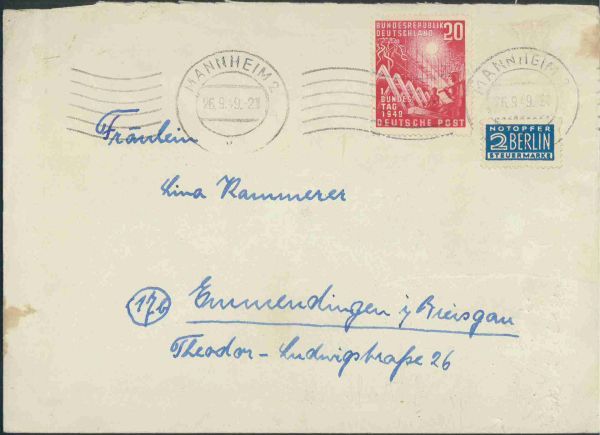 BUNDESREPUBLIK 20
DEUTSCHLAND
1.
BUNDES
TAG
1949
DEUTSCHE POST
MANNHEIM 2
26.9.49.-23
MANNHEIM 2
26.9.49.
NOTOPFER
2 BERLIN
STEUERMARKE
Fräulein
Lina Kammerer
17b Emmendingen i/Breisgau
Theodor-Ludwigstraße 26